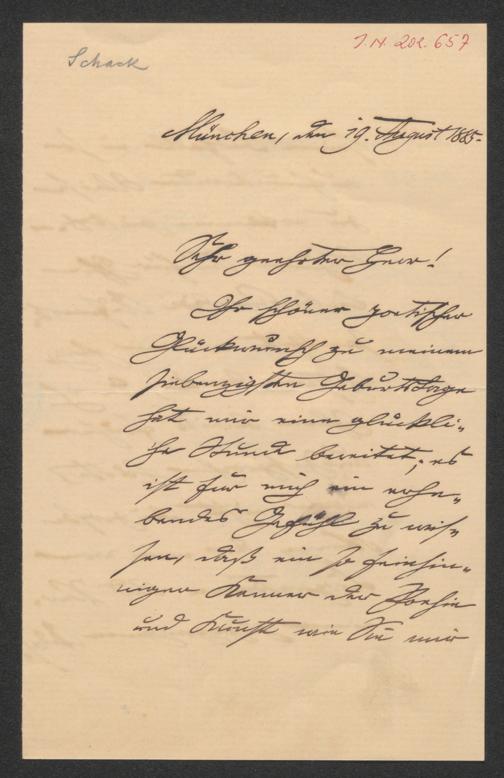 Schack
J.N. 202.657
München, den 19. August 1885.
Sehr geehrter Herr!
Ihr schöner poetischer
Glückwunsch zu meinem
siebenzigsten Geburtstage
hat mir eine glückli-
che Stunde bereitet; es
ist für mich ein erhe-
bendes Gefühl zu wis-
sen, daß ein so feinsin-
niger Kenner der Poesie
und Kunst wie Sie mir